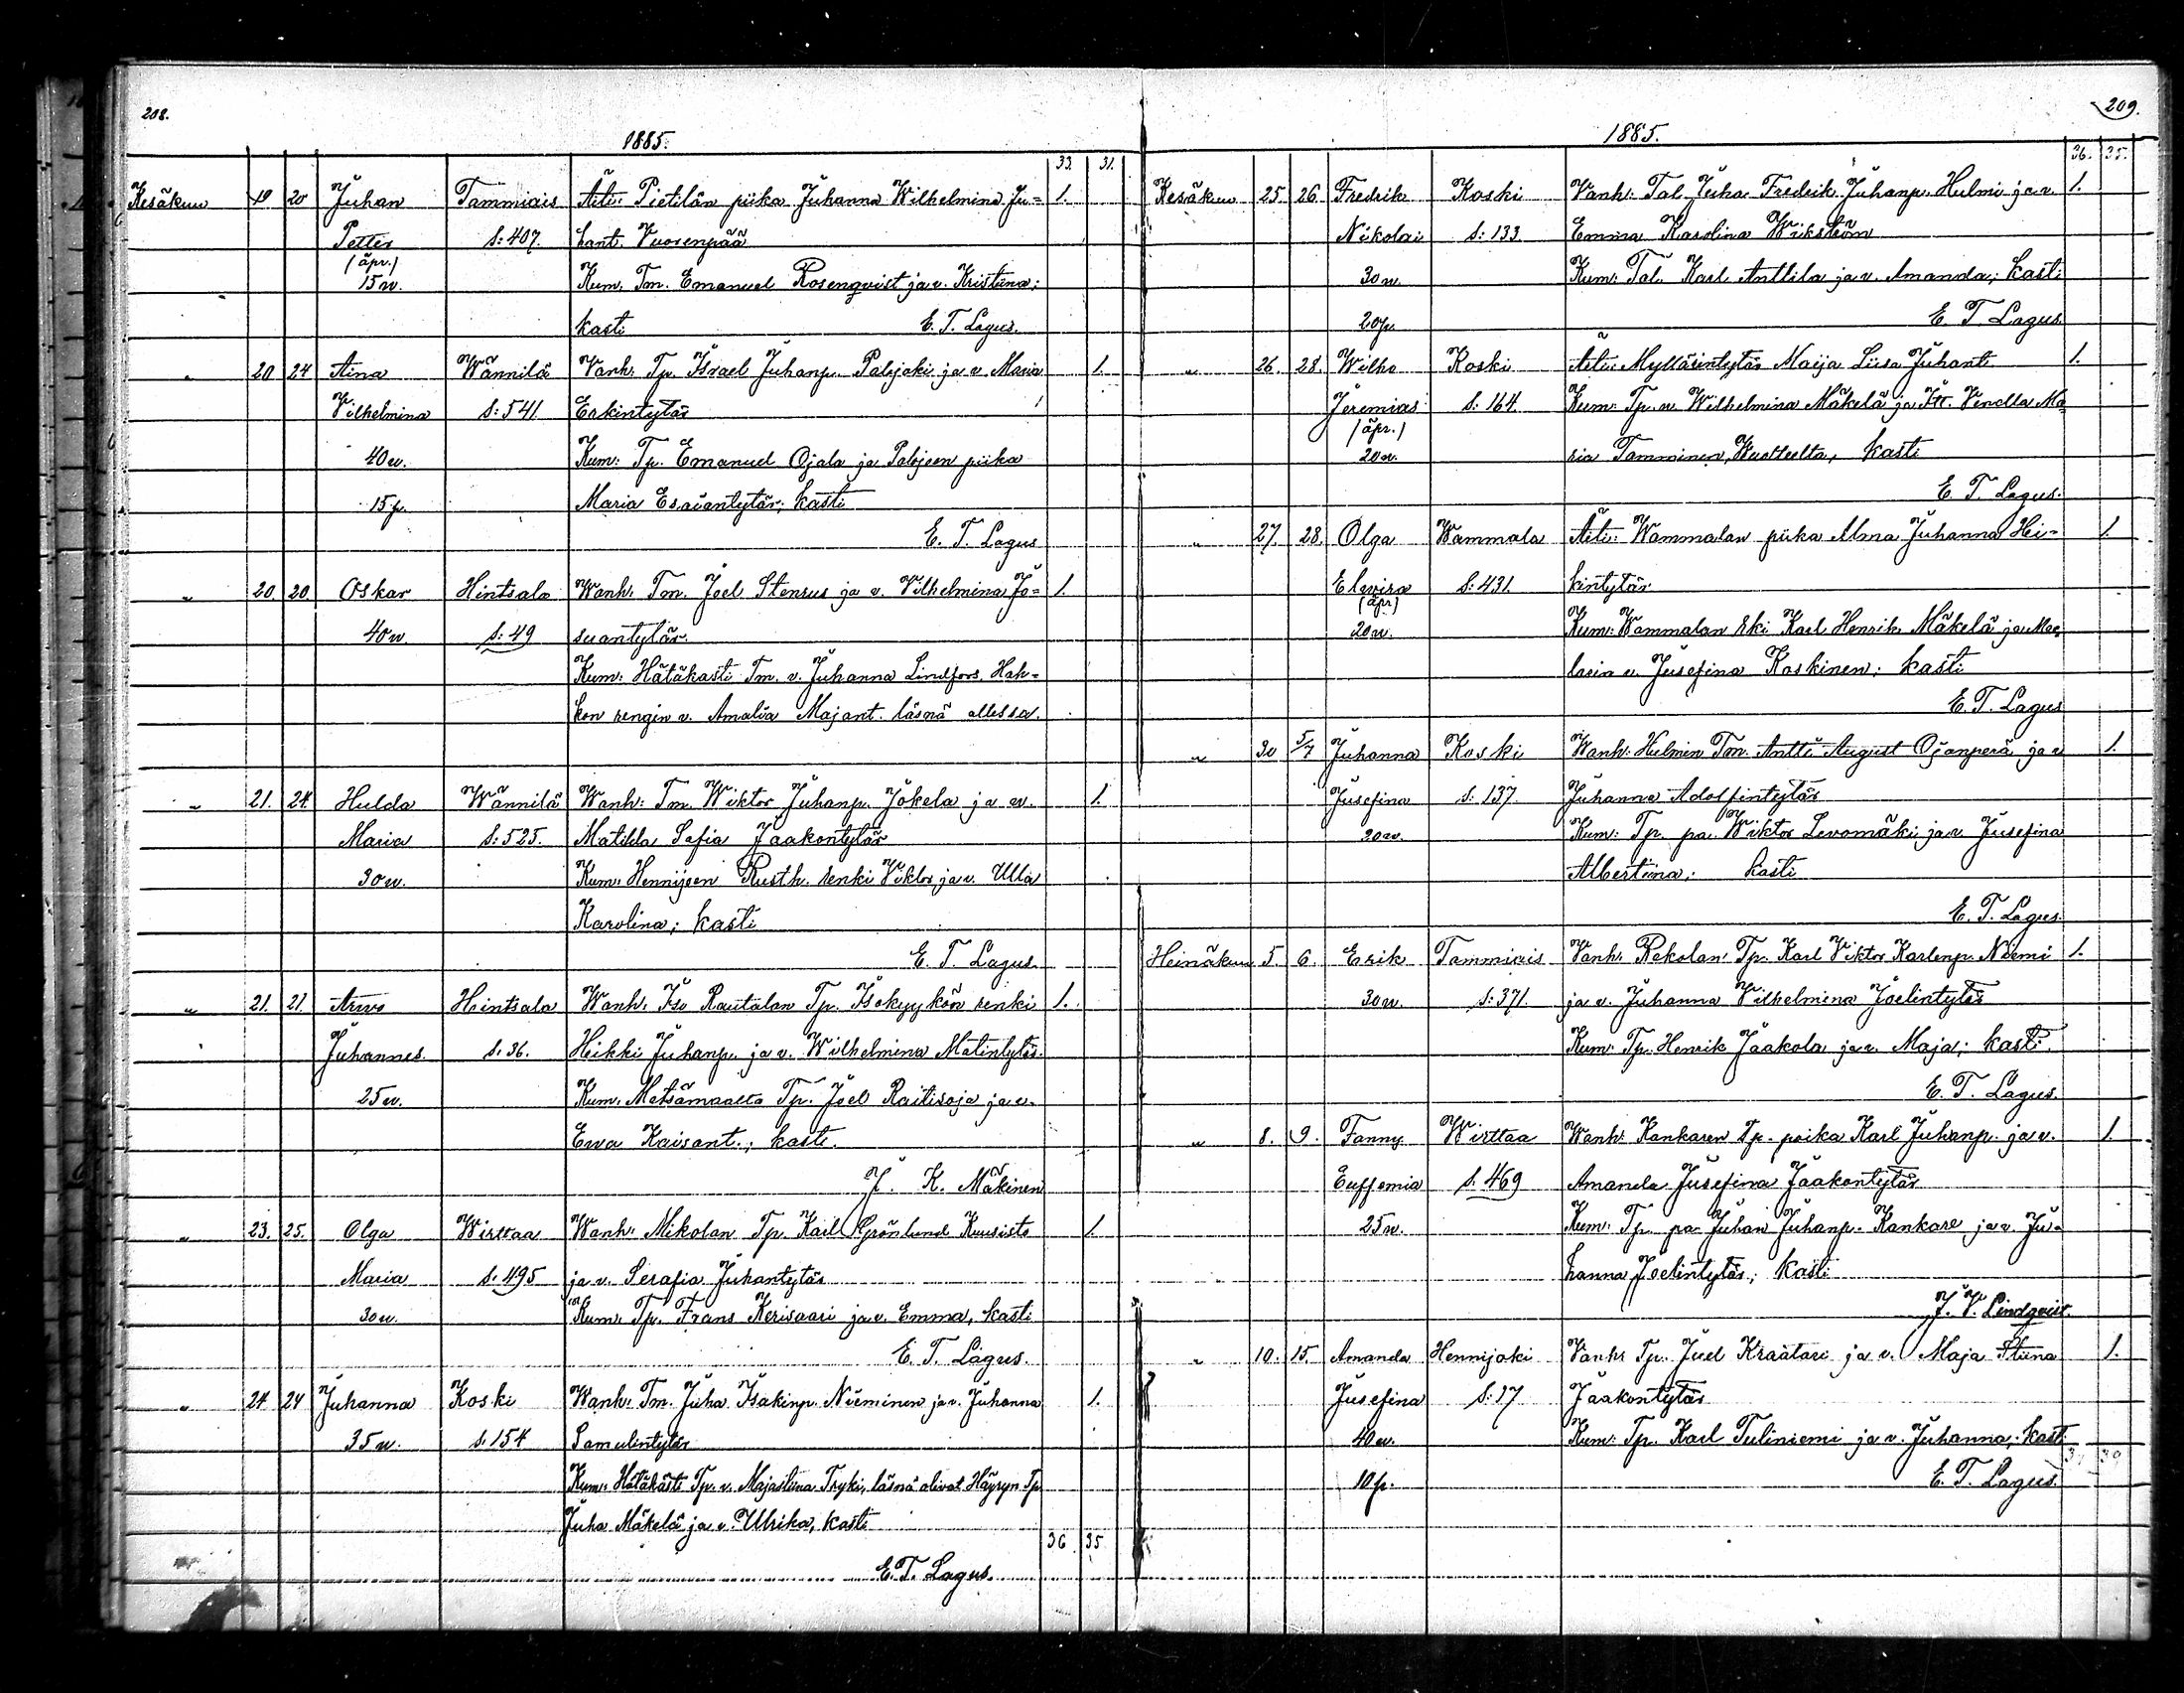 208.
1885.
33. 31.
Kesäkuu 19 20 Juhan Tammiais Äiti: Pietilän piika Juhanna Wilhelmina Ju= 1.
Petter S: 407. hant. Vuorenpää
(äpr.)
15 w. Kum. Tm. Emanuel Rosenqvist ja v. Kristiina;
kasti E. T. Lagus.
" 20 24 Aina Wännilä Vanh. Tp. Israel Juhanp. Palojoki ja v. Maria 1.
Vilhelmina S: 541. Erkintytär
40 w. Kum: Tp. Emanuel Ojala ja Palojoen piika
15 p. Maria Esaiantytär; kasti
E. T. Lagus
" 20 20 Oskar Hintsala Wanh. Tm. Joel Stenrus ja v. Vilhelmina Jo= 1.
40 w. S: 49 suantytär.
Kum: Hätäkasti Tm. v. Juhanna Lindfors, Hah=
kon rengin v. Amalia Majant. läsnä ollessa.
" 21. 24. Hulda Wännilä Wanh: Tm. Wiktor Juhanp. Jokela ja v. 1.
Maria S: 525. Matilda Sofia Jaakontytär
30 w. Kum: Hennijoen Rusth. renki Viktor ja v. Ulla
Karolina; kasti
E. T. Lagus.
" 21. 21. Arvo Hintsala Wanh. Iso Rautalan Tp. Isokyykön renki 1.
Juhannes. S. 36. Heikki Juhanp. ja v. Wilhelmina Matintytär.
25 w. Kum. Metsämaalta Tp. Joel Raitisoja ja v.
Ewa Kaisant.; kasti.
J. K. Mäkinen
" 23. 25. Olga Wirttaa Wanh: Mikolan Tp. Karl Grönlund Kuusisto 1.
Maria S. 495 ja v. Serafia Juhantytär
30 w. Kum: Tp. Frans Kerisaari ja v. Emma, kasti
E. T. Lagus.
" 24. 24 Juhanna Koski Wanh: Tm. Juha Isakinp. Nieminen ja v. Juhanna 1.
35 w. S. 154 Samulintytär
Kum: Hätäkasti Tp. v. Majastiina Tryki, läsnä olivat Häyryn Tp.
Juha Mäkelä ja v. Ulrika, kasti
36 35
E. T. Lagus.
209.
1885.
36. 35.
Kesäkuu 25. 26. Fredrik Koski Vanh: Tal. Juha Fredrik Juhanp. Hulmi ja v. 1.
Nikolai S: 133. Emma Karolina Wikström
30 w. Kum: Tal. Karl Anttila ja v. Amanda; kasti
20 p. E. T. Lagus.
" 26. 28. Wilho Koski Äiti: Mylläsintytär Maija Liisa Juhant. 1.
Jeremias S: 164. Kum: Tp. v. Wilhelmina Mäkelä ja Vendla Ma=
(äpr.)
20 w. ria Tamminen, kasti
E. T. Lagus.
" 27. 28. Olga Wammala Äiti: Wammalan piika Alma Juhanna Hei= 1.
Elwira S: 431. kintytär
(äpr)
20 w. Kum: Wammalan Karl Henrik Mäkelä ja
v. Jusefina Koskinen; kasti
E. T. Lagus
" 30 5/7 Juhanna Koski Wanh: Hulmin Tm. Antti August Ojanperä ja v 1.
Jusefina S: 137. Juhanna Adolfintytär
20 w. Kum: Tp. pa. Viktor Levomäki ja v. Jusefina
Albertiina; kasti
E. T. Lagus.
Heinäkuu 5. 6. Erik Tammiais Vanh: Rekolan Tp. Karl Viktor Karlenp. Niemi 1.
30 w. S: 371. ja v. Juhanna Vilhelmina Joelintytär
Kum: Tp. Henrik Jaakola ja v. Maja; kasti.
E. T. Lagus.
" 8. 9. Fanny Wirttaa Wanh: Kankaren Tp. poika Karl Juhanp. ja v. 1.
Euffemia S. 469 Amanda Jusefina Jaakontytär
25 w. Kum: Tp. pa Juhan Juhanp. Kankare ja v. Ju=
hanna Joelintytär; kasti
J. V. Lindqvist.
" 10. 15. Amanda Hennijoki Vanh: Tp. Juel Kraatari ja v. Maja Stiina 1.
Jusefina S: 17 Jaakontytär
40 w. Kum: Tp. Karl Tuliniemi ja v. Juhanna; kasti
10 p. E. T. Lagus.